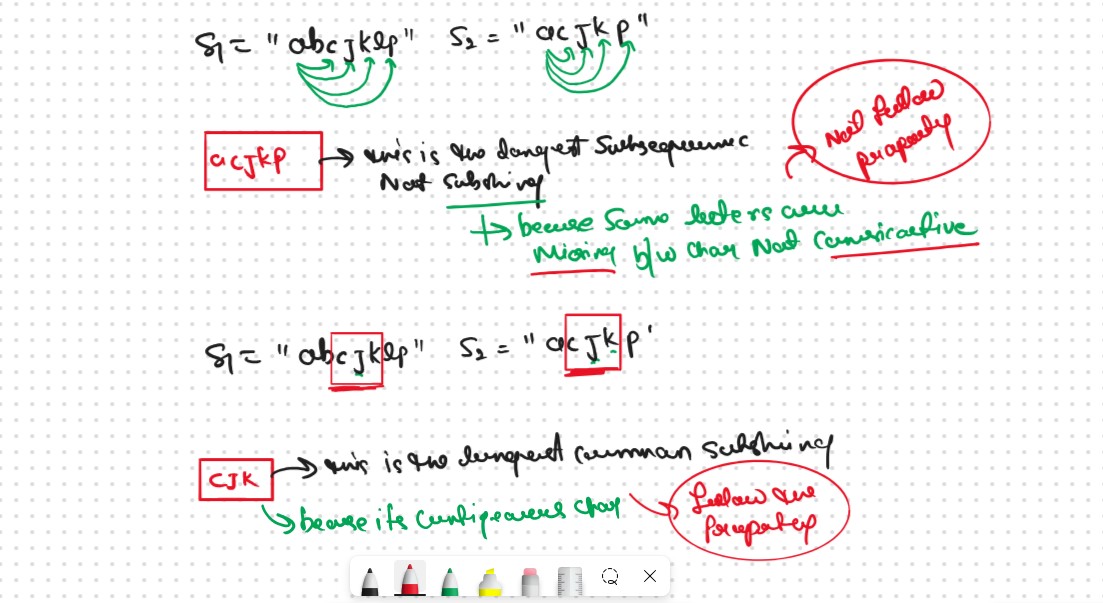 S1 = "abcjklp" S2 = "acjkp"
acjkp → this is the longest Subsequence
Not Substring
Not follow
property
→ because Some letters are
Missing b/w char Not Consicactive
S1 = "abcjklp" S2 = "acjkp'
CJK → this is the longest common substring
→ because its contigeaous char
follow the
Property